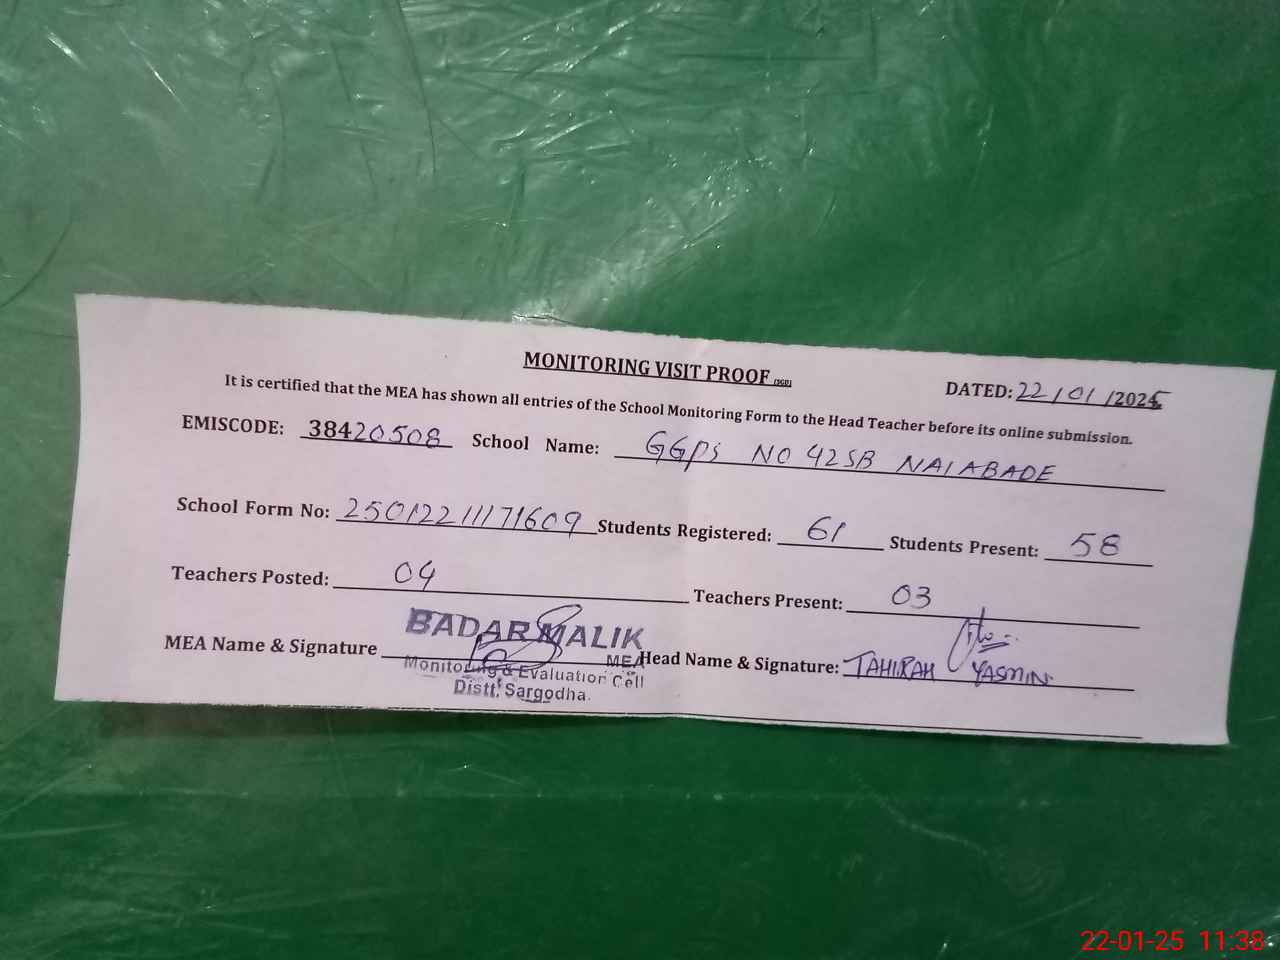 MONITORING VISIT PROOF
DATED: 22/01/2025
It is certified that the MEA has shown all entries of the School Monitoring Form to the Head Teacher before its online submission.
EMISCODE: 38420508 School Name: GGPS NO 42SB NAIABADE
School Form No: 25012211171609 Students Registered: 61 Students Present: 58
Teachers Posted: 04 Teachers Present: 03
MEA Name & Signature BADAR MALIK Head Name & Signature: TAHIRAH YASMIN
MEA
Monitoring & Evaluation Cell
Distt. Sargodha.
22-01-25 11:38